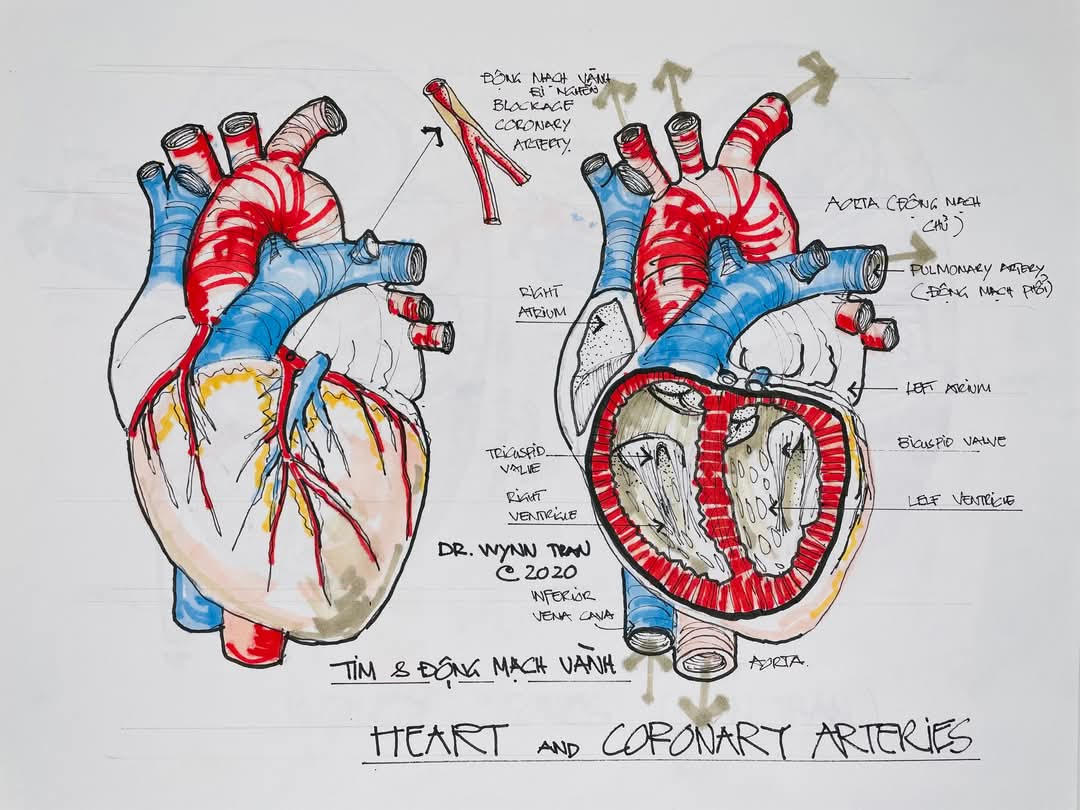 ĐỘNG MẠCH VÀNH
BỊ NGHẼN
BLOCKAGE
CORONARY
ARTERTY.
AORTA (ĐỘNG MẠCH
CHỦ)
PULMONARY ARTERY
(ĐỘNG MẠCH PHỔI)
RIGHT
ATRIUM
LEFT ATRIUM
BICUSPID VALVE
TRICUSPID
VALVE
RIGHT
VENTRICLE
LEFT VENTRICLE
DR. WYNN TRAN
© 2020
INFERIOR
VENA CAVA
AORTA.
TIM & ĐỘNG MẠCH VÀNH
HEART AND CORONARY ARTERIES